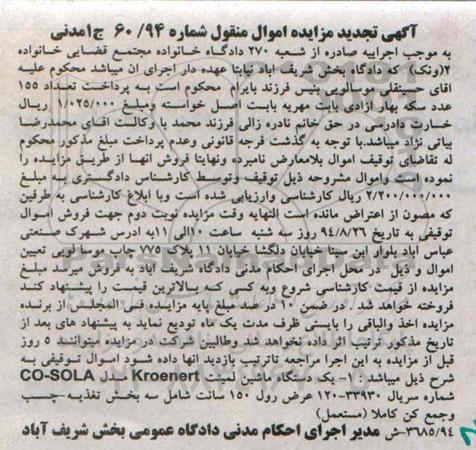 آگهی تجدید مزایده اموال منقول شماره ۶۰/۹۴ ج۱مدنی
به موجب اجراییه صادره از شعبه ۲۷۰ دادگاه خانواده مجتمع قضایی خانواده
۲(ونک) که دادگاه بخش شریف اباد نیابتا عهده دار اجرای ان میباشد محکوم علیه
اقای حسینقلی موسالویی بنیس فرزند بایرام محکوم است به پرداخت تعداد ۱۵۵
عدد سکه بهار ازادی بابت مهریه بابت اصل خواسته ومبلغ ۱/۰۲۵/۰۰۰ ریال
خسارت دادرسی در حق خانم نادره زالی فرزند محمد با وکالت اقای محمدرضا
بیاتی نژاد میباشد.با توجه به گذشت فرجه قانونی وعدم پرداخت مبلغ مذکور محکوم
له تقاضای توقیف اموال بلامعارض نامبرده ونهایتا فروش انها از طریق مزایده را
نموده است واموال مشروحه ذیل توقیف وتوسط کارشناس دادگستری به مبلغ
۲/۲۰۰/۰۰۰/۰۰۰ ریال کارشناسی وارزیابی شده است وبا ابلاغ کارشناسی به طرفین
که مصون از اعتراض مانده است النهایه وقت مزایده نوبت دوم جهت فروش اموال
توقیفی به تاریخ ۹۴/۸/۲۶ روز سه شنبه ساعت ۱۰الی ۱۱به ادرس شهرک صنعتی
عباس اباد بلوار ابن سینا خیابان دلگشا خیابان ۱۱ پلاک ۷۷۵ چاپ موسا لویی تعیین
اموال و ذیل در محل اجرای احکام مدنی دادگاه شریف اباد به فروش میرسد مبلغ
مزایده از قیمت کارشناسی شروع وبه کسی که بالاترین قیمت را پیشنهاد کند
فروخته خواهد شد . در ضمن ۱۰ در صد مبلغ پایه مزایده فی المجلس از برنده
مزایده اخذ والباقی را بایستی ظرف مدت یک ماه تودیع نماید به پیشنهاد های بعد از
تاریخ مذکور ترتیب اثر داده نخواهد شد وطالبین شرکت در مزایده میتوانند ۵ روز
قبل از مزایده به این اجرا مراجعه تاترتیب بازدید انها داده شود اموال توقیفی به
شرح ذیل میباشد ۱- یک دستگاه ماشین لمینت Kroenert مدل CO-SOLA
شماره سریال ۳۳۹۳۰-۱۲۰ عرض رول ۱۵۰ سانت شامل سه بخش تغذیه چسب
وجمع کن کاملا (مستعمل)
۳۶۸۵/۹۴-ش مدیر اجرای احکام مدنی دادگاه عمومی بخش شریف آباد